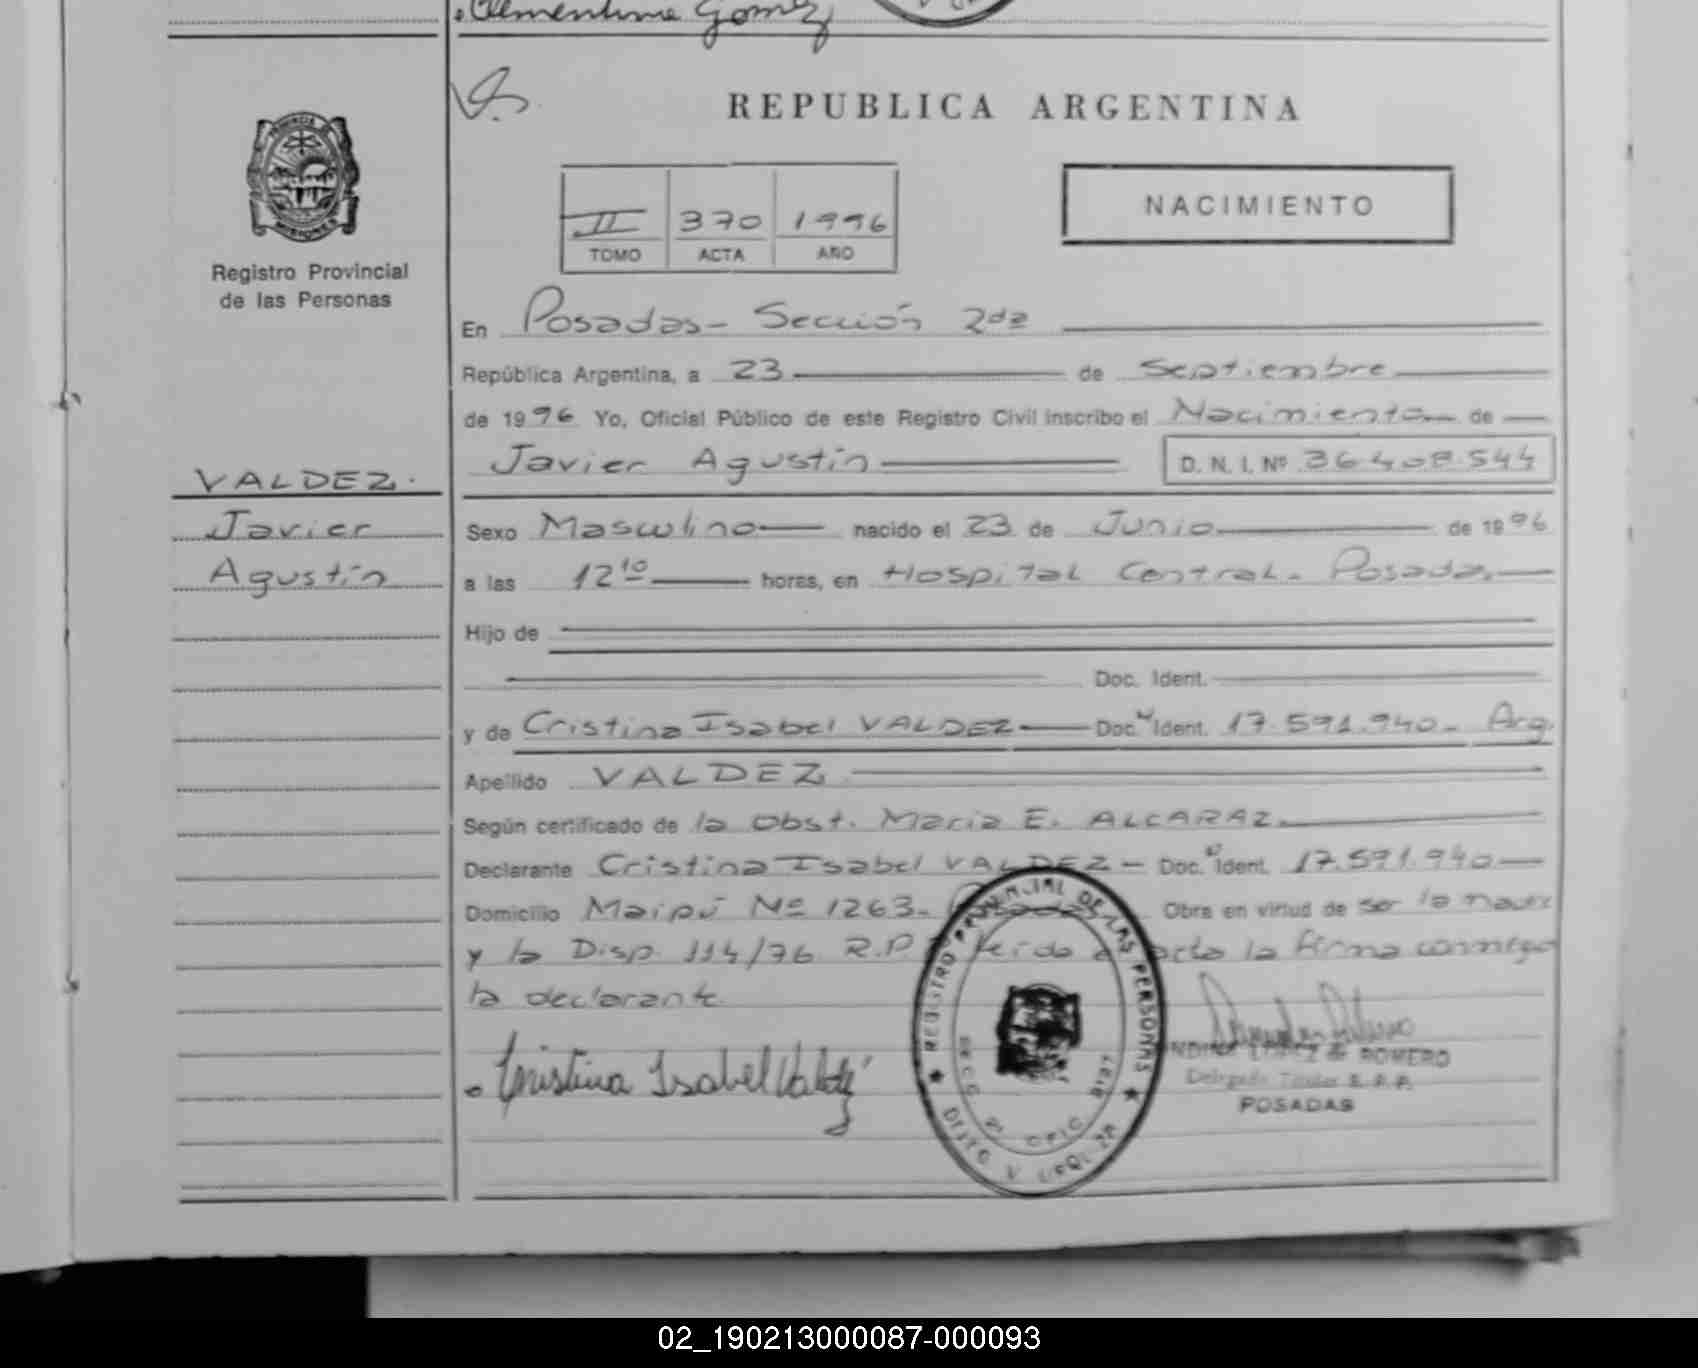 Clementina Gomez
REPUBLICA ARGENTINA
PROVINCIA DE
MISIONES
Registro Provincial
de las Personas
NACIMIENTO
II 370 1996
TOMO ACTA AÑO
En Posadas - Sección 2da
República Argentina, a 23 de Septiembre
de 1996 Yo, Oficial Público de este Registro Civil inscribo el Nacimiento de
Javier Agustín D. N. I. Nº 36.408.544
VALDEZ.
Javier
Agustín
Sexo Masculino nacido el 23 de Junio de 1996
a las 12 10 horas, en Hospital Central - Posadas
Hijo de
Doc. Ident.
y de Cristina Isabel VALDEZ Doc. Ident. 17.591.940 - Arg.
Apellido VALDEZ
Según certificado de la Obst. Maria E. ALCARAZ
Declarante Cristina Isabel VALDEZ - Doc. Ident. 17.591.940
Domicilio Maipú Nº 1263 - Posadas Obra en virtud de ser la madre
y la Disp. 114/76 R.P. Leída el acta la firma conmigo
la declarante.
Cristina Isabel Valdez
REGISTRO PROVINCIAL DE LAS PERSONAS
SECC 2ª OFIC
DPTO
LOPEZ de ROMERO
Delegada Titular
POSADAS
02_190213000087-000093